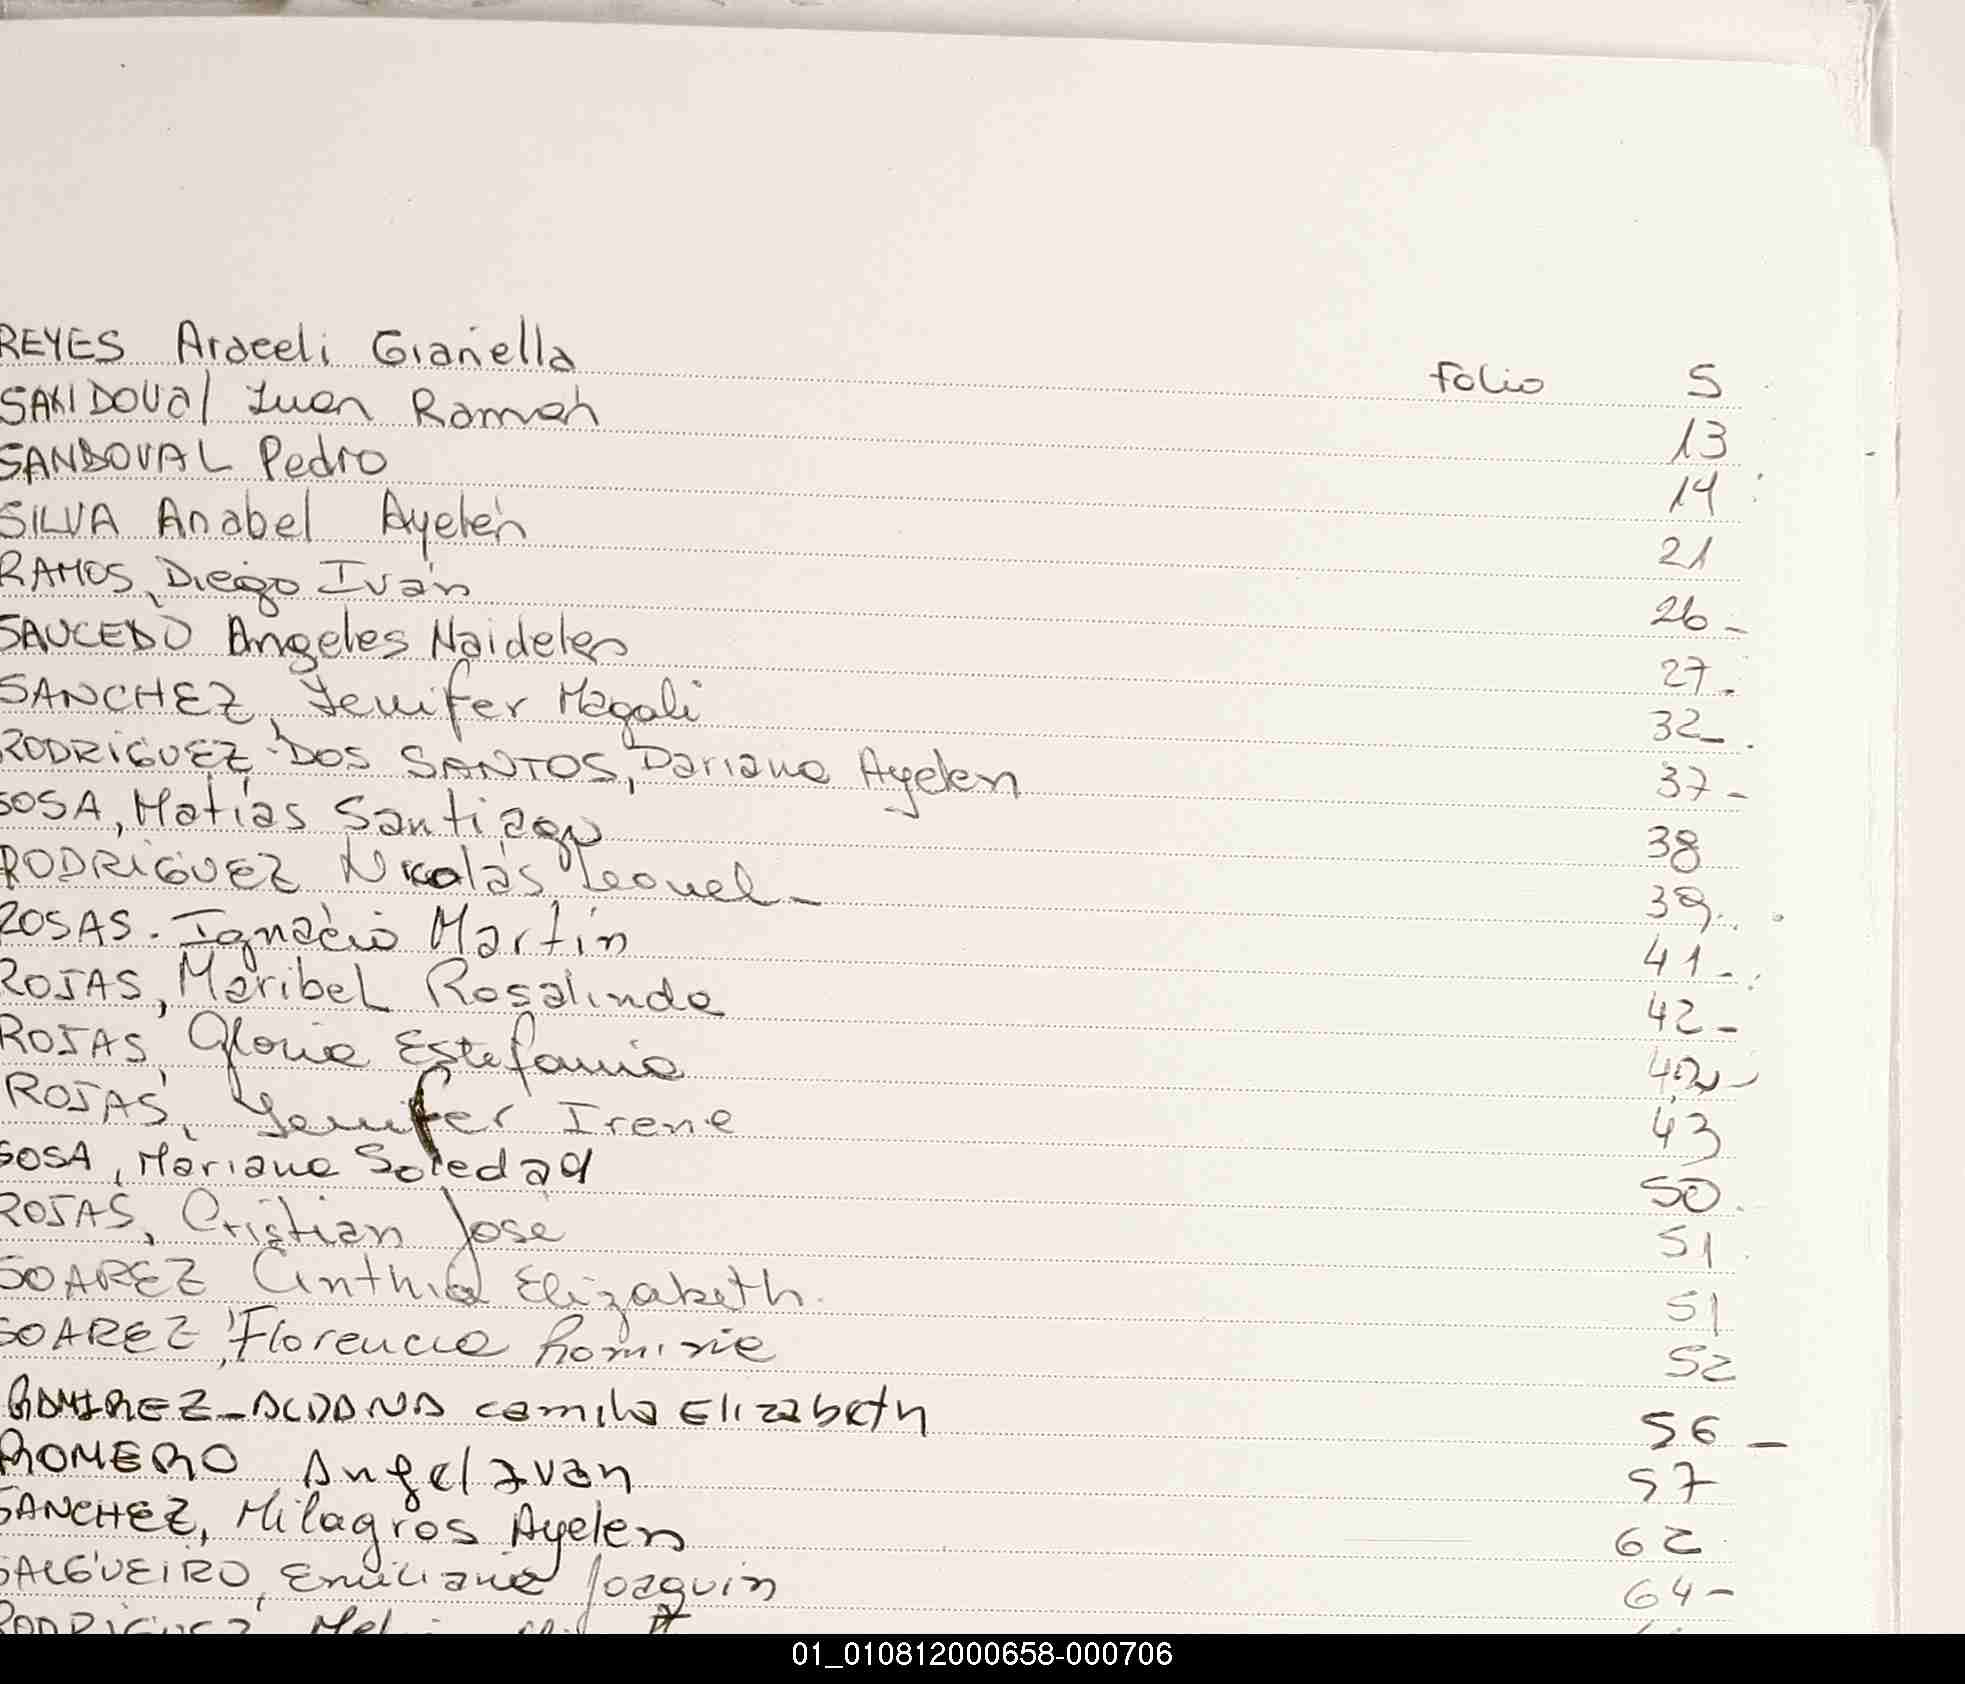 REYES Araceli Gianella Folio 5
SANDOVAL Juan Ramón 13
SANDOVAL Pedro 14
SILVA Anabel Ayelén 21
RAMOS, Diego Iván 26 -
SAUCEDO Angeles Naidelen 27.
SANCHEZ, Jennifer Magali 32 -
RODRÍGUEZ DOS SANTOS, Dariana Ayelen 37 -
SOSA, Matías Santiago 38
RODRÍGUEZ Nicolás Leonel - 39.
ROSAS. Ignacio Martín 41 -
ROJAS, Maribel Rosalinda 42 -
ROJAS, Gloria Estefania 42 -
ROJAS, Jennifer Irene 43
SOSA, Mariana Soledad 50
ROJAS, Cristian José 51
SOAREZ Cinthia Elizabeth. 51
SOAREZ, Florencia Romina 52
RAMIREZ-ALDANA Camila Elizabeth 56 -
ROMERO Angel Ivan 57
SANCHEZ, Milagros Ayelen 62
SALGUEIRO, Emiliano Joaquin 64 -
RODRÍGUEZ
01_010812000658-000706